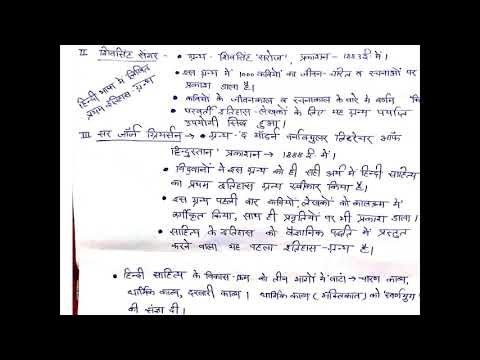 II शिवसिंह सेंगर - • ग्रन्थ - शिवसिंह 'सरोज', प्रकाशन - 1883 ई. में।
• इस ग्रन्थ में 1000 कवियों का जीवन-चरित व रचनाओं पर
प्रकाश डाला है।
हिन्दी भाषा में लिखित
प्रथम इतिहास-ग्रन्थ
• कवियों के जीवनकाल व रचनाकाल के बारे में वर्णन
• परवर्ती इतिहास-लेखकों के लिए यह ग्रन्थ पर्याप्त
उपयोगी सिद्ध हुआ।
III सर जॉर्ज ग्रियर्सन → • ग्रन्थ - 'द मॉडर्न वर्नाक्युलर लिटरेचर ऑफ
हिन्दुस्तान' प्रकाशन → 1888 ई. में।
• विद्वानों ने इस ग्रन्थ को ही सही अर्थ में हिन्दी साहित्य
का प्रथम इतिहास ग्रन्थ स्वीकार किया है।
• इस ग्रन्थ पहली बार कवियों, लेखकों को कालक्रम में
वर्गीकृत किया, साथ ही प्रवृत्तियों पर भी प्रकाश डाला।
• साहित्य के इतिहास को वैज्ञानिक पद्धति में प्रस्तुत
करने वाला यह पहला इतिहास-ग्रन्थ है।
• हिन्दी साहित्य के विकास-क्रम को तीन भागों में बांटा → चारण काव्य,
धार्मिक काव्य, दरबारी काव्य। धार्मिक काव्य (भक्तिकाल) को 'स्वर्णयुग
की संज्ञा दी।